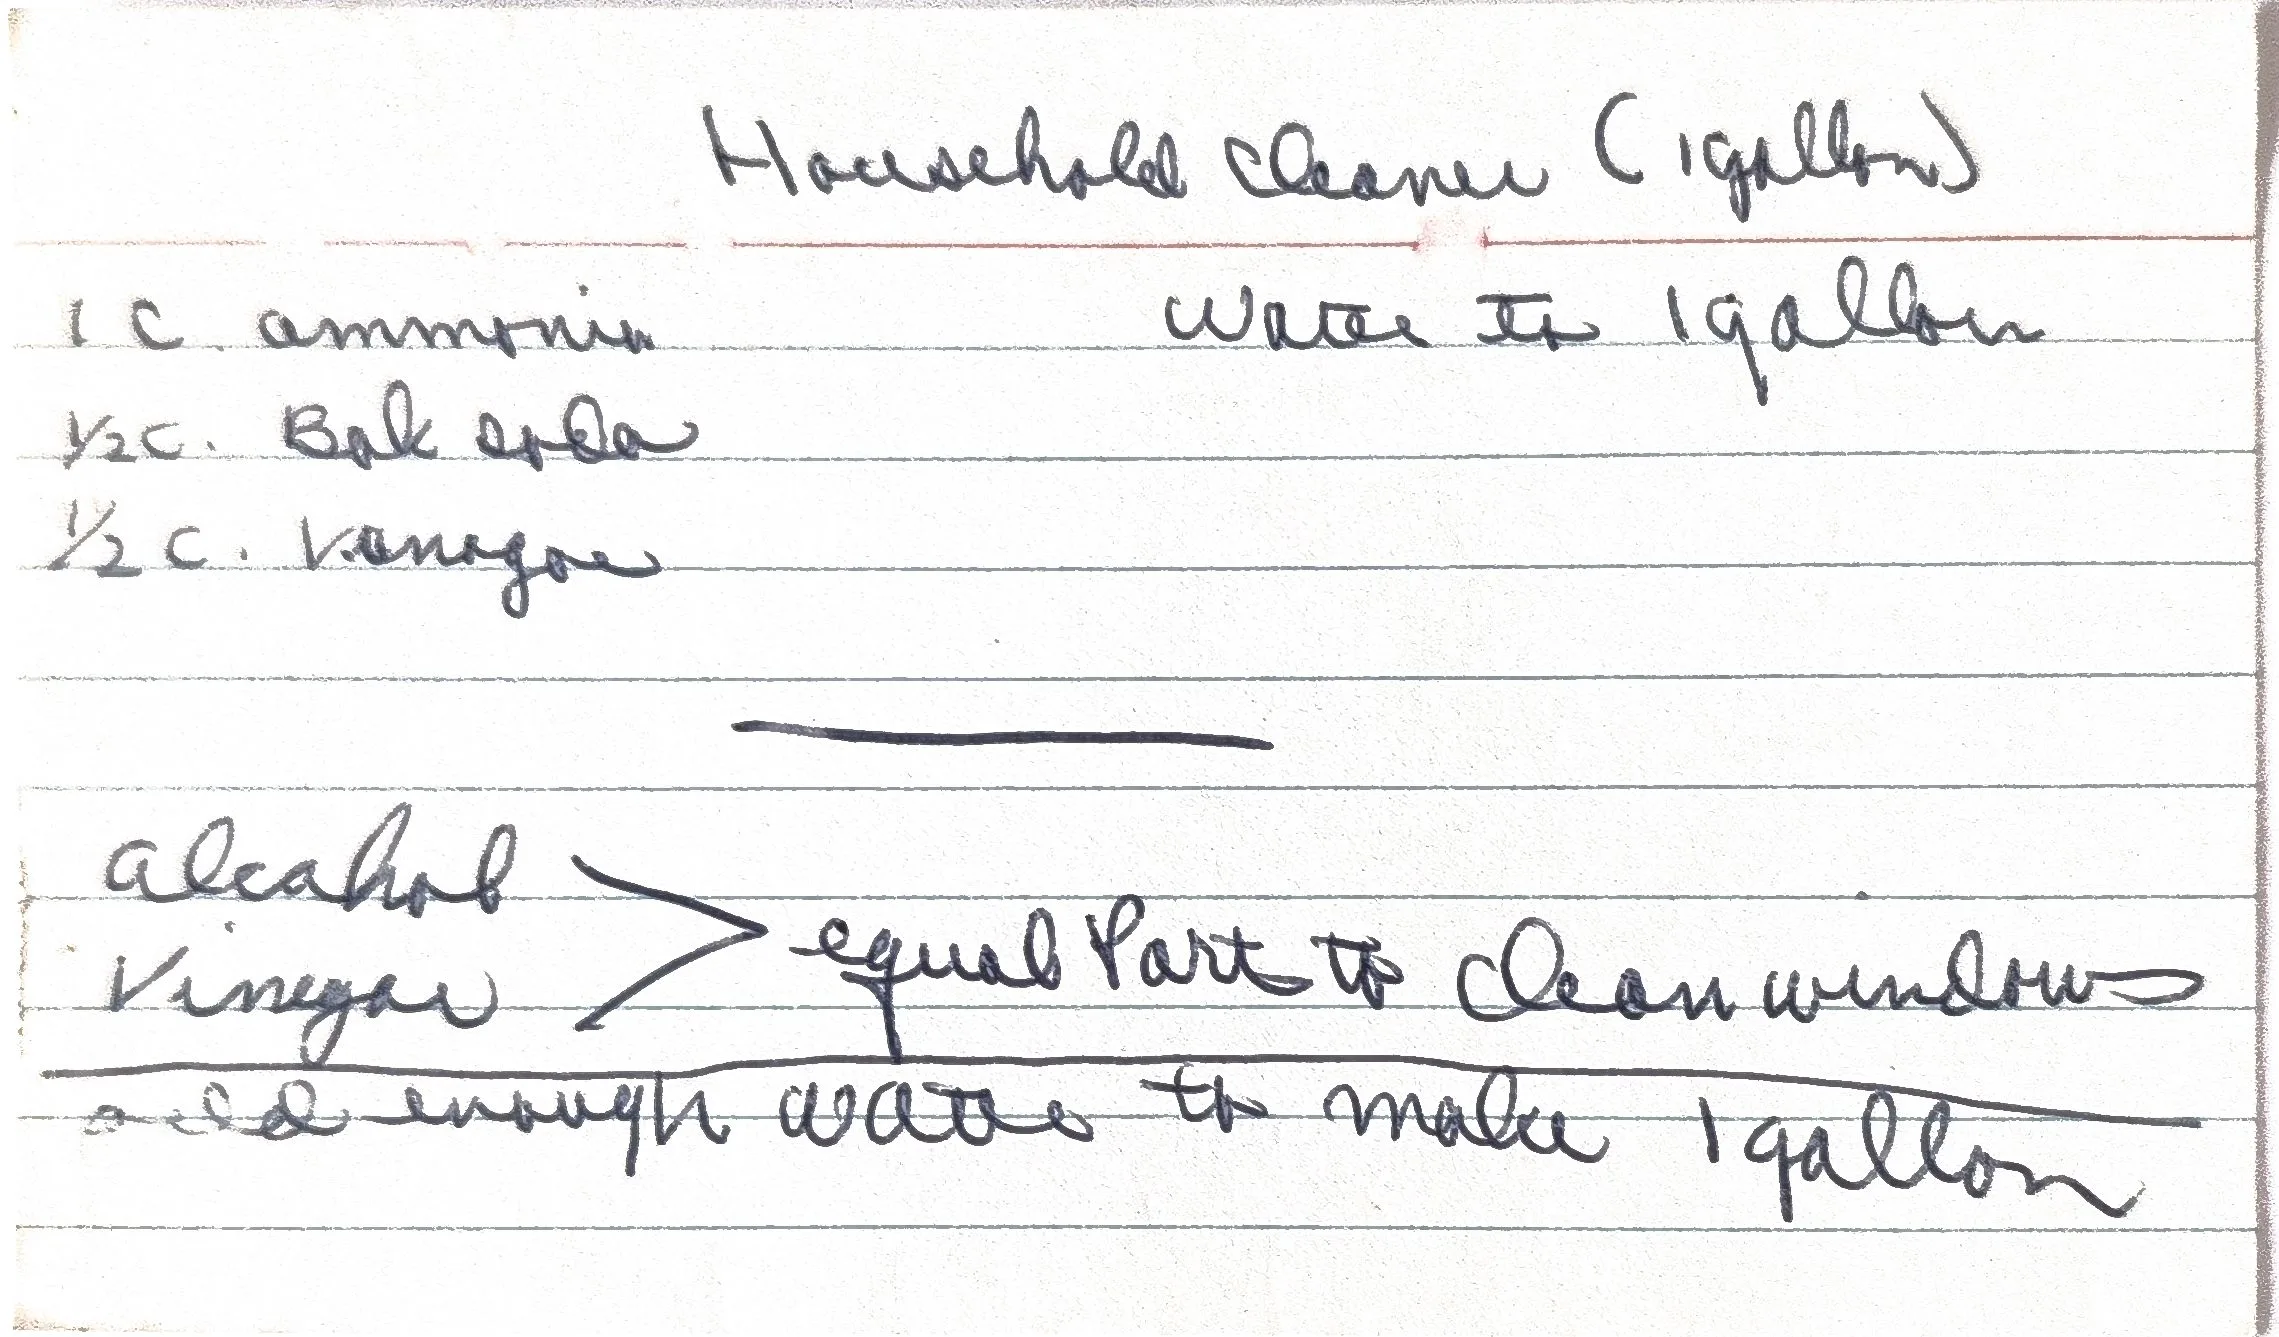 Household Cleaner (1 gallon)
1 C. ammonia Water to 1 gallon
1/2 C. Bak soda
1/2 C. Vinegar
alcahol
Vinegar > equal Parts to clean windows
add enough water to make 1 gallon